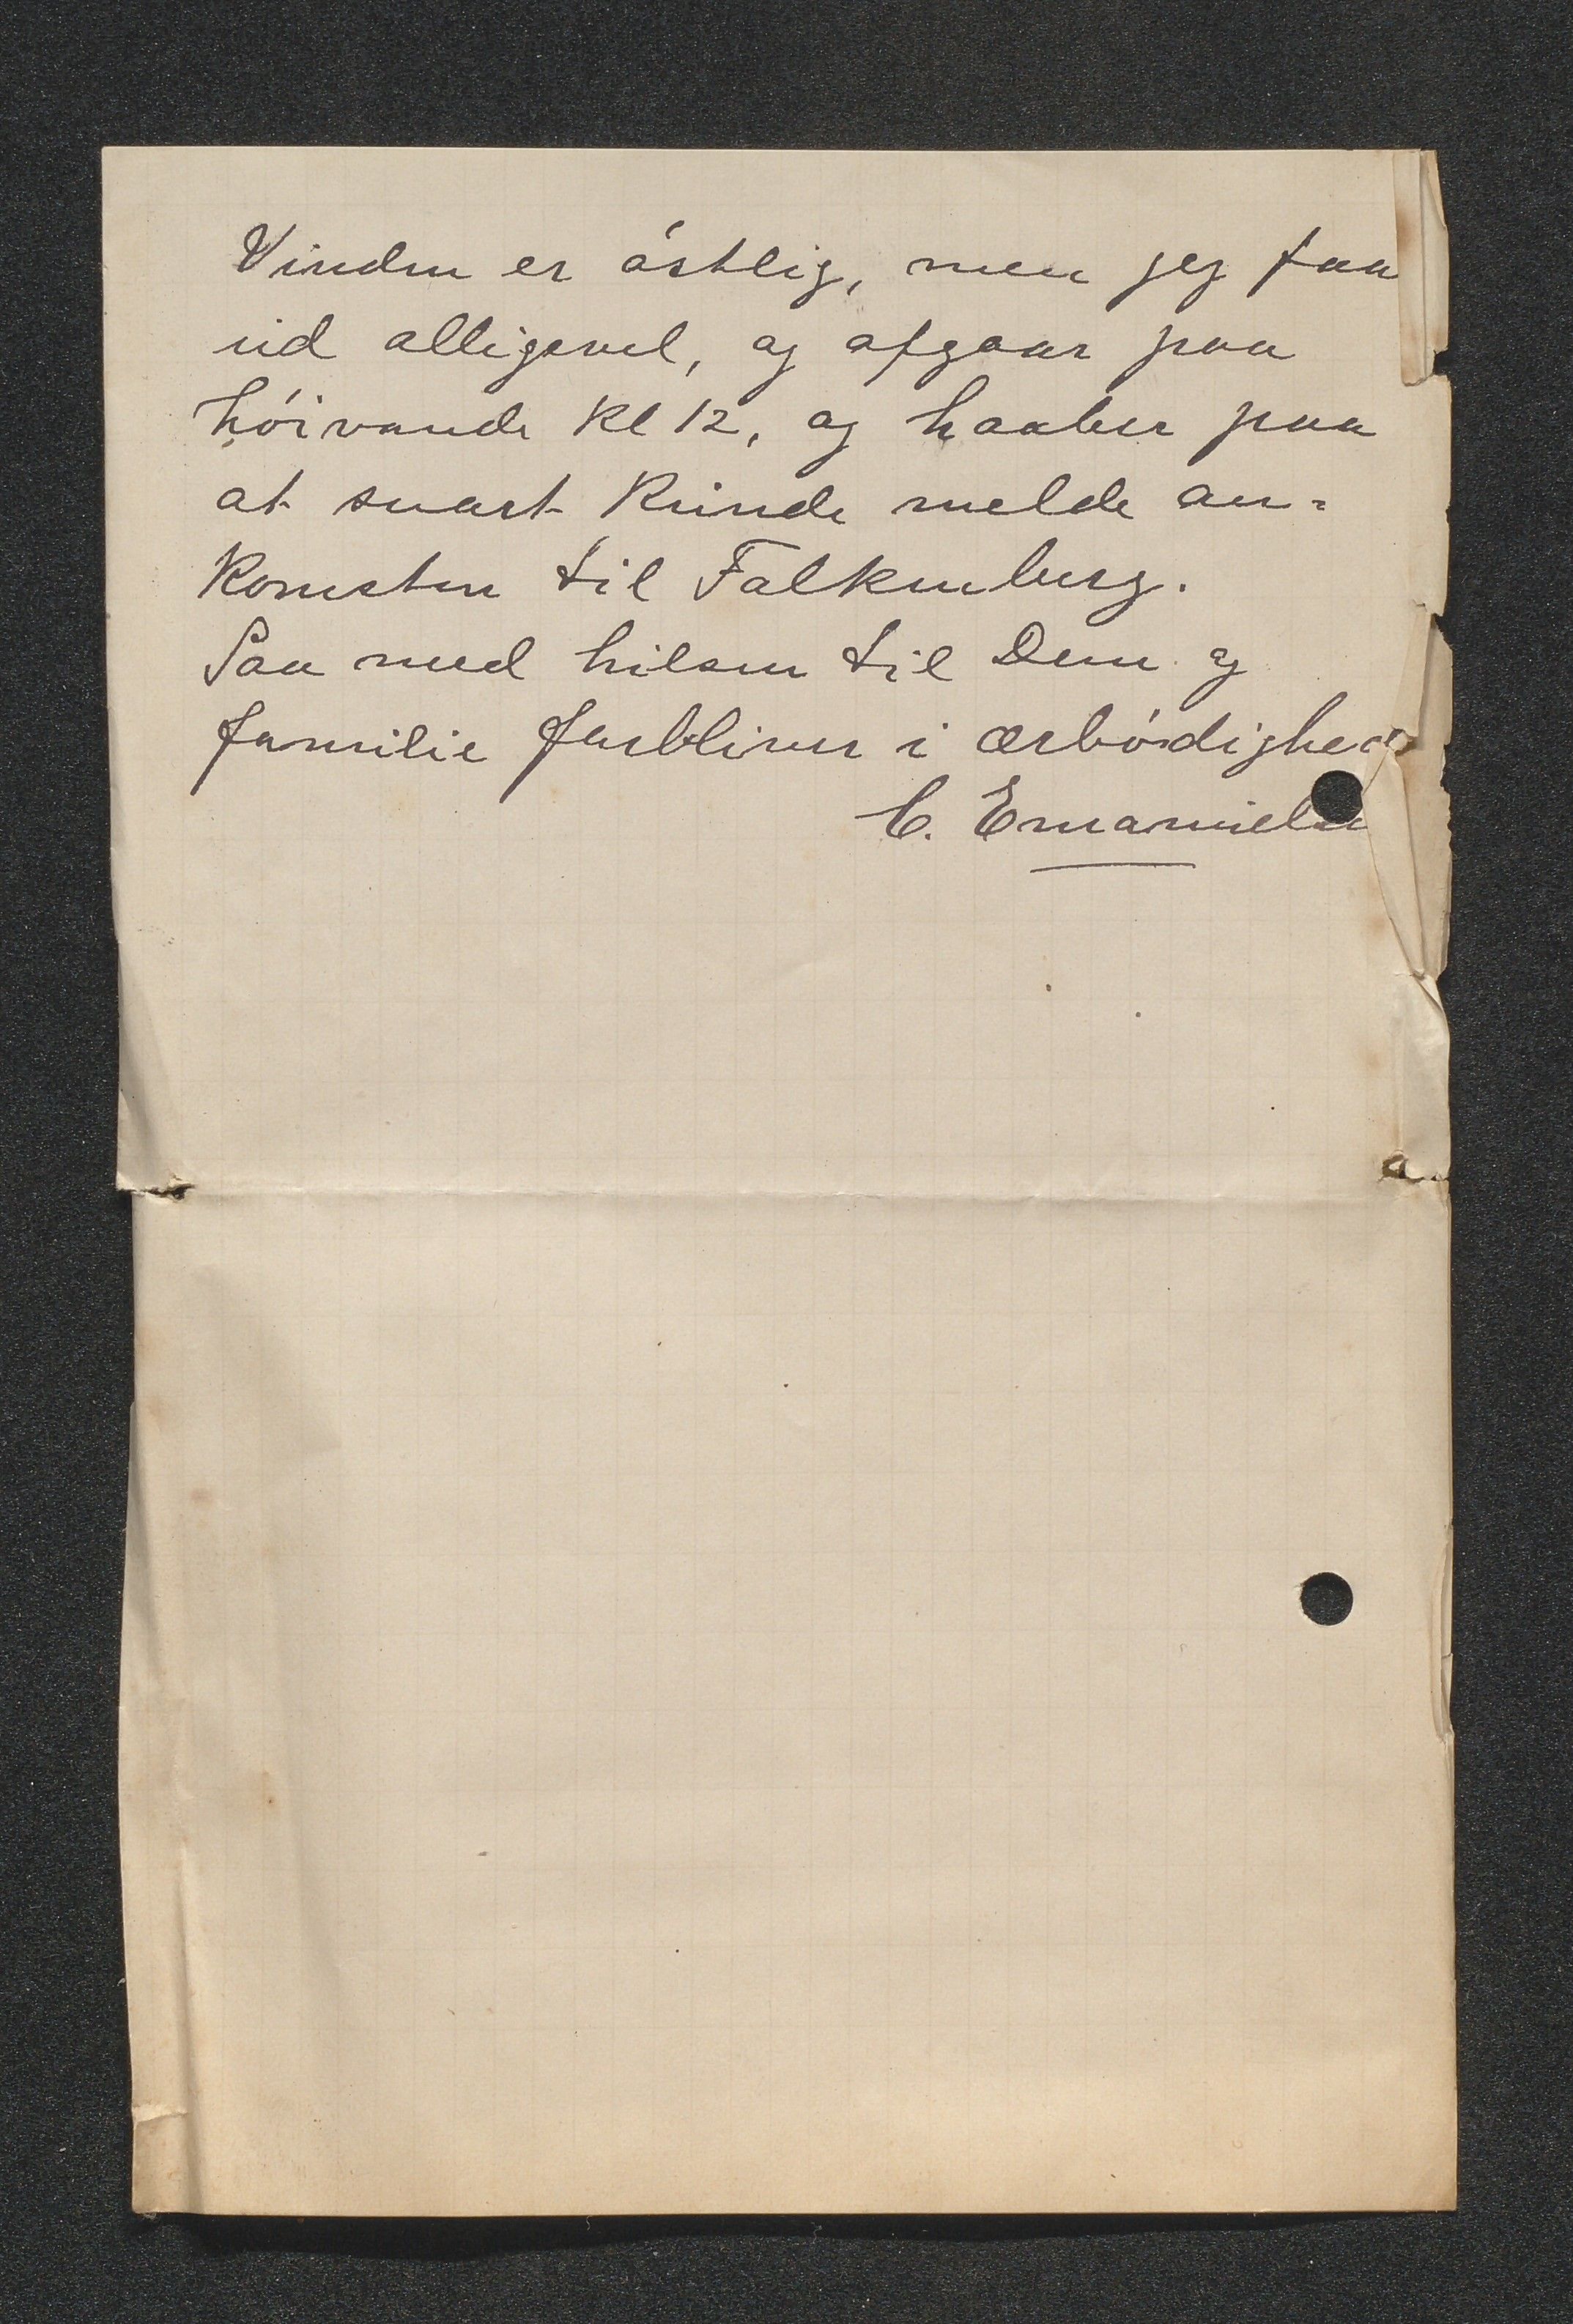 Vinden er östlig, men jeg faa
ud alligevel, og afgaar paa
höivande Kl 12, og haaber paa
at snart kunde melde an=
komsten til Falkenberg.
Saa med hilsen til Dem og
familie forbliver i ærbödighed
C. Emanuels